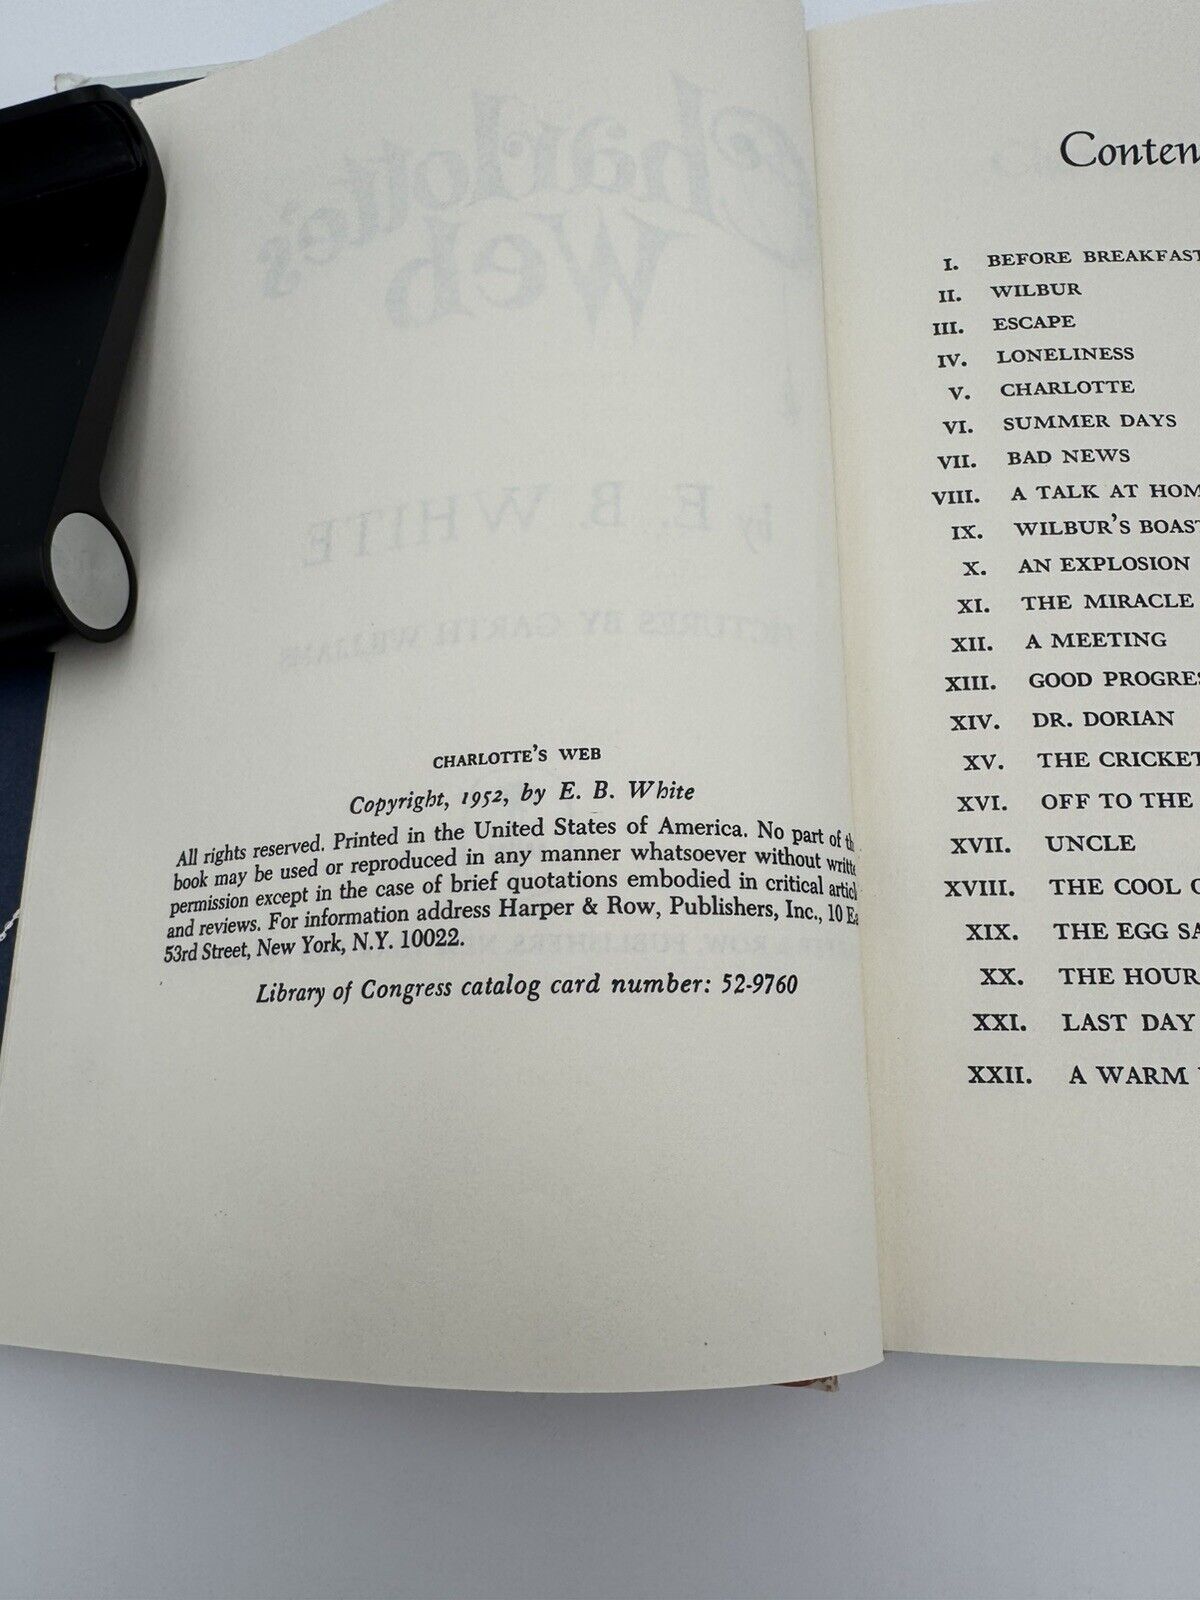 CHARLOTTE'S WEB
Copyright, 1952, by E. B. White
All rights reserved. Printed in the United States of America. No part of th
book may be used or reproduced in any manner whatsoever without writte
permission except in the case of brief quotations embodied in critical articl
and reviews. For information address Harper & Row, Publishers, Inc., 10 Ea
53rd Street, New York, N.Y. 10022.
Library of Congress catalog card number: 52-9760
Charlotte's
Web
by E. B. WHITE
PICTURES BY GARTH WILLIAMS
Conten
I. BEFORE BREAKFAST
II. WILBUR
III. ESCAPE
IV. LONELINESS
V. CHARLOTTE
VI. SUMMER DAYS
VII. BAD NEWS
VIII. A TALK AT HOM
IX. WILBUR'S BOAST
X. AN EXPLOSION
XI. THE MIRACLE
XII. A MEETING
XIII. GOOD PROGRES
XIV. DR. DORIAN
XV. THE CRICKET
XVI. OFF TO THE
XVII. UNCLE
XVIII. THE COOL O
XIX. THE EGG SA
XX. THE HOUR
XXI. LAST DAY
XXII. A WARM